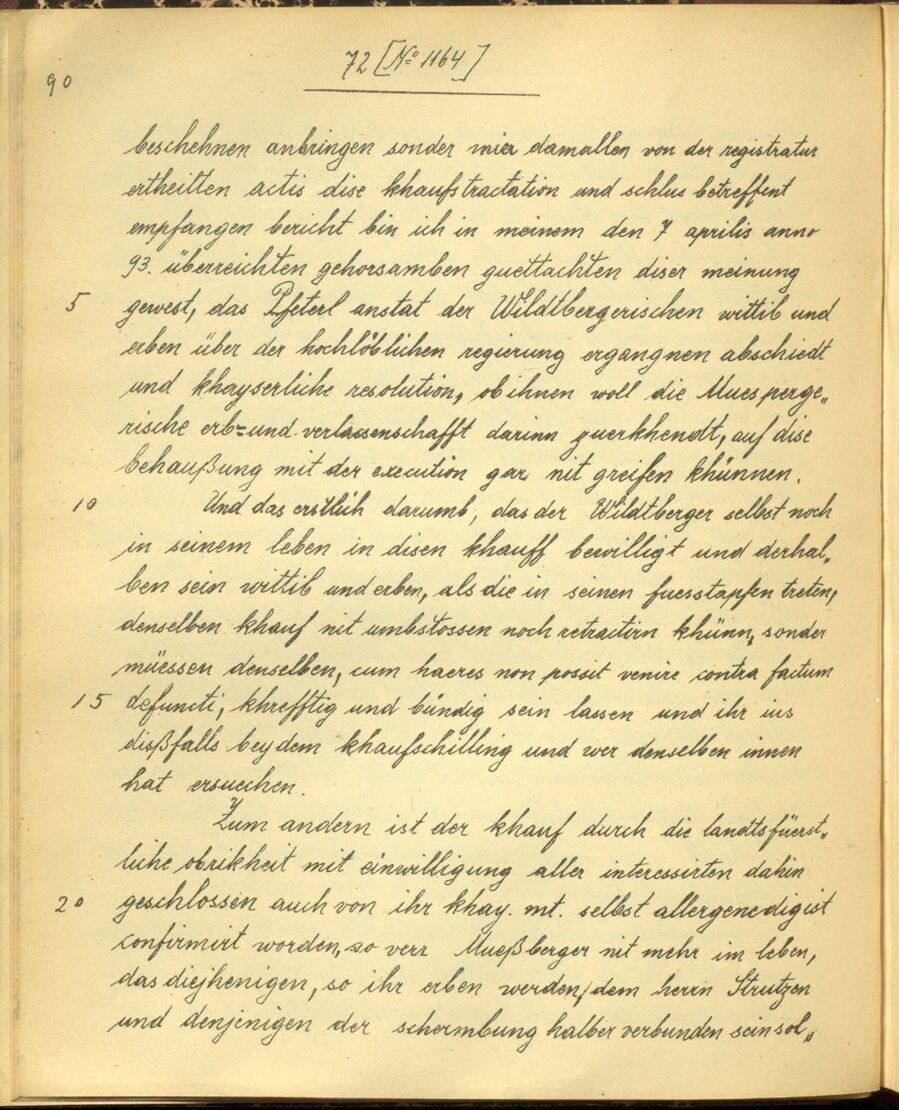 72 [No 1164]
90
beschehnen anbringen sonder mier damallen von der registratur
ertheilten actis dise khaufstractation und schlus betreffent
empfangen bericht bin ich in meinem den 7 aprilis anno
93. überreichten gehorsamben guettachten diser meinung
5 gewest, das Pfeterl anstat der Wildtbergerischen wittib und
erben über der hochlöblichen regierung ergangnen abschiedt
und khayserliche resolution, ob ihnen woll die Muesperge„
rische erb- und verlassenschafft darinn zuerkhendt, auf dise
behaußung mit der execution gar nit greifen khünnen.
10 Und das erstlich darumb, das der Wildtberger selbst noch
in seinem leben in disen khauff bewilligt und derhal„
ben sein wittib und erben, als die in seinen fuesstapfen treten,
denselben khauf nit umbstossen noch retractirn khünn, sonder
müessen denselben, cum haeres non possit venire contra factum
15 defuncti, khrefftig und bündig sein lassen und ihr ius
dißfalls bey dem khaufschilling und wer denselben innen
hat ersuechen.
Zum andern ist der khauf durch die landtsfüerst„
liche obrikheit mit einwilligung aller interessirten dahin
20 geschlossen auch von ihr khay. mt. selbst allergenedigist
confirmirt worden, so verr Mueßberger nit mehr im leben,
das diejhenigen, so ihr erben werden, dem herrn Strutzen
und denjenigen der schermbung halber verbunden sein sol„